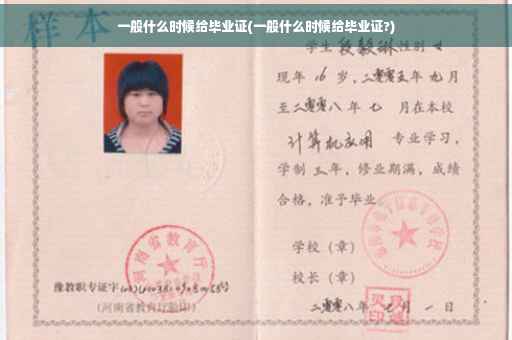 一般什么时候给毕业证(一般什么时候给毕业证?)
样本
学生段毅琳性别女
现年16岁,二零零五年九月
至二零零八年七月在本校
计算机应用 专业学习,
学制三年,修业期满,成绩
合格,准予毕业
学校(章)
校长(章)
二零零八年七月一日
河南省教育厅
豫教职专证字
(河南省教育厅验印)